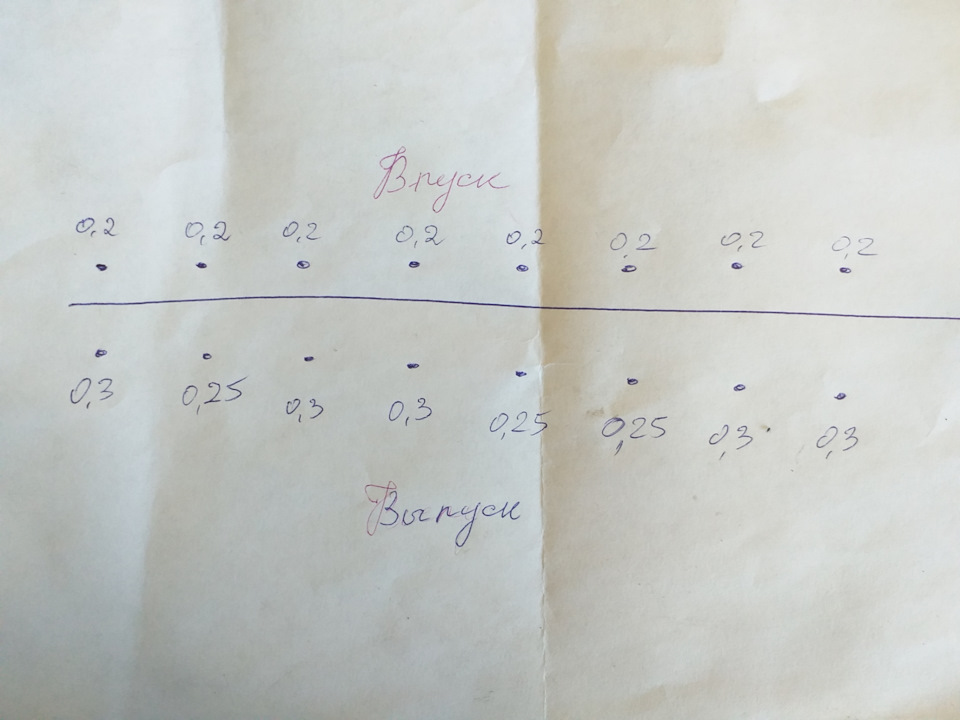 Впуск
0,2 0,2 0,2 0,2 0,2 0,2 0,2 0,2
0,3 0,25 0,3 0,3 0,25 0,25 0,3 0,3
Выпуск